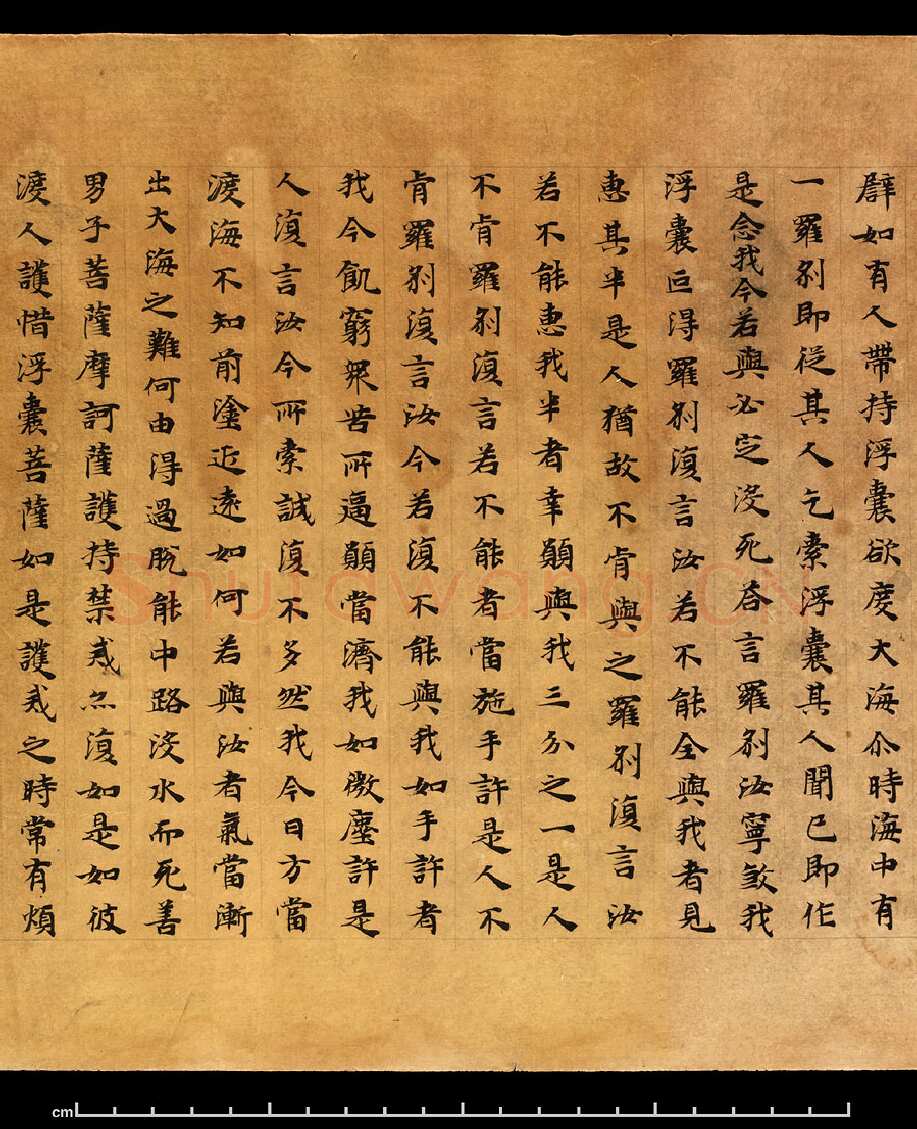 譬如有人帶持浮囊欲度大海尒時海中有
一羅剎即從其人乞索浮囊其人聞已即作
是念我今若與必定没死荅言羅剎汝寧煞我
浮囊叵得羅剎復言汝若不能全與我者見
惠其半是人猶故不肯與之羅剎復言汝
若不能惠我半者幸願與我三分之一是人
不肯羅剎復言若不能者當施手許是人不
肯羅剎復言汝今若復不能與我如手許者
我今飢窮衆苦所逼願當濟我如微塵許是
人復言汝今所索誠復不多然我今日方當
渡海不知前塗近遠如何若與汝者氣當漸
出大海之難何由得過脫能中路没水而死善
男子菩薩摩訶薩護持禁戒亦復如是如彼
渡人護惜浮囊菩薩如是護戒之時常有煩
Shufawang.CN
cm